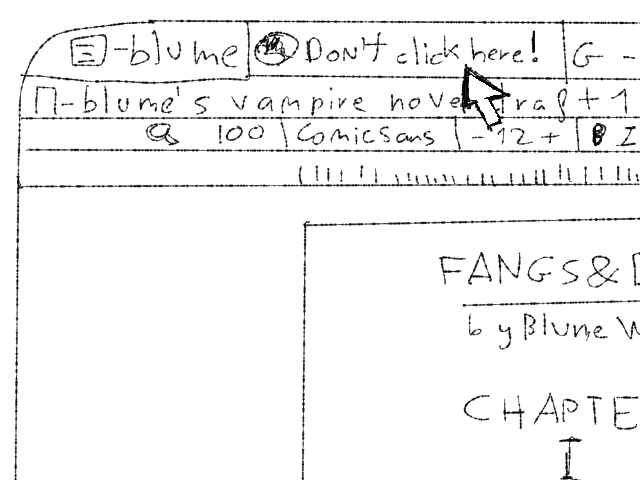 -blume DON't click here! G -
-blume's vampire novel draft 1
100 Comic Sans - 12 + B I
FANGS & D
by Blume W
CHAPTE